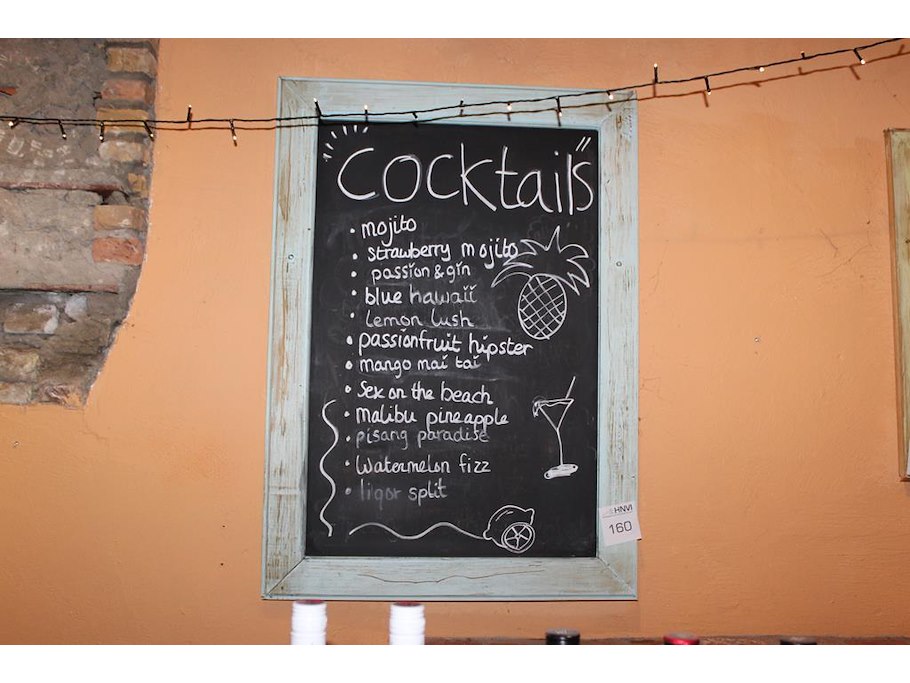 Cocktails
• mojito
• strawberry mojito
• passion & gin
• blue hawaii
• lemon lush
• passionfruit hipster
• mango mai tai
• Sex on the beach
• malibu pineapple
• pisang paradise
• Watermelon fizz
• liqor split
HNVI
160